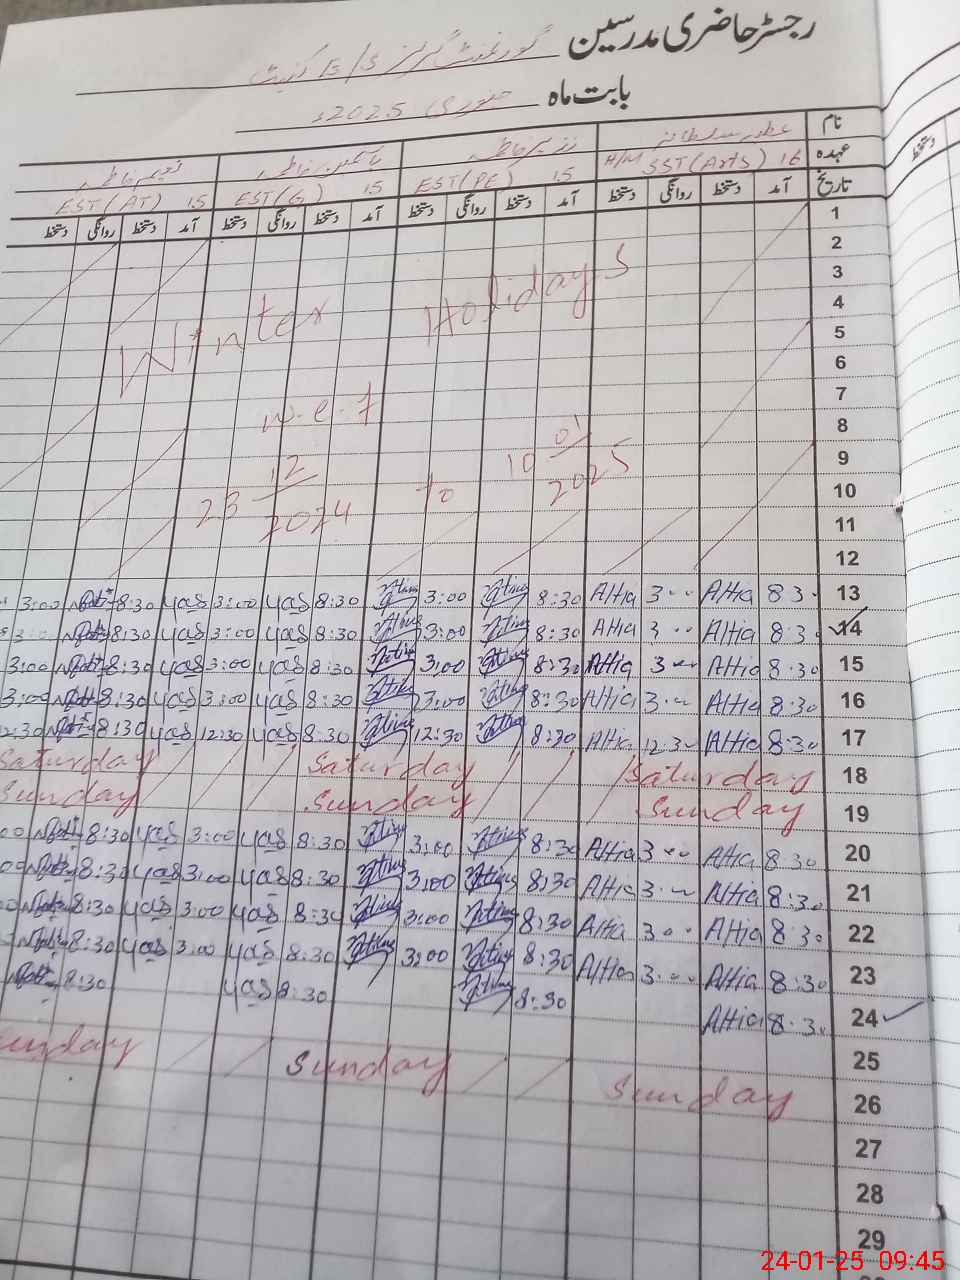 رجسٹر حاضری مدرسین گورنمنٹ گرلز E/S
بابت ماہ جنوری 2025ء
نام
عہدہ H/M SST (Arts) 16 EST (PE) 15 EST (G) 15 EST (AT) 15
تاریخ آمد دستخط روانگی دستخط آمد دستخط روانگی دستخط آمد دستخط روانگی دستخط آمد دستخط روانگی دستخط
دستخط
1
2
3
4
5
6
7
8
9
10
11
12
Winter Holidays
w.e.f
23 12/2024 to 10 01/2025
3:00 8:30 yas 3:00 yas 8:30 3:00 8:30 Attia 3 .. Attia 8 3. 13
3: 8:30 yas 3:00 yas 8:30 3:00 8:30 Attia 3 .. Attia 8:3. 14
3:00 8:30 yas 3:00 yas 8:30 3:00 8:30 Attia 3 .. Attia 8:30 15
3:00 8:30 yas 3:00 yas 8:30 3:00 8:30 Attia 3 .. Attia 8:30 16
12:30 8:30 yas 12:30 yas 8:30 12:30 8:30 Attia 12:30 Attia 8:30 17
Saturday Saturday Saturday 18
Sunday Sunday Sunday 19
00 8:30 yas 3:00 yas 8:30 3:00 8:30 Attia 3 .. Attia 8:30 20
00 8:30 yas 3:00 yas 8:30 3:00 8:30 Attia 3 .. Attia 8:30 21
00 8:30 yas 3:00 yas 8:30 3:00 8:30 Attia 3 .. Attia 8:30 22
8:30 yas 3:00 yas 8:30 3:00 8:30 Attia 3 .. Attia 8:30 23
8:30 yas 8:30 8:30 Attia 8:3. 24
25
unday Sunday Sunday 26
27
28
29
24-01-25 09:45